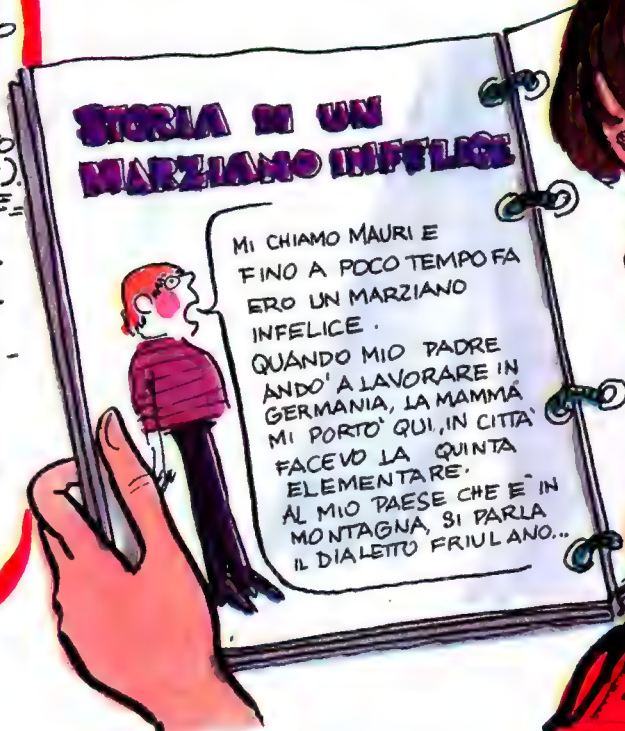 STORIA DI UN
MARZIANO INFELICE
MI CHIAMO MAURI E
FINO A POCO TEMPO FA
ERO UN MARZIANO
INFELICE.
QUANDO MIO PADRE
ANDO' A LAVORARE IN
GERMANIA, LA MAMMA
MI PORTO' QUI, IN CITTA'
FACEVO LA QUINTA
ELEMENTARE.
AL MIO PAESE CHE E' IN
MONTAGNA, SI PARLA
IL DIALETTO FRIULANO...